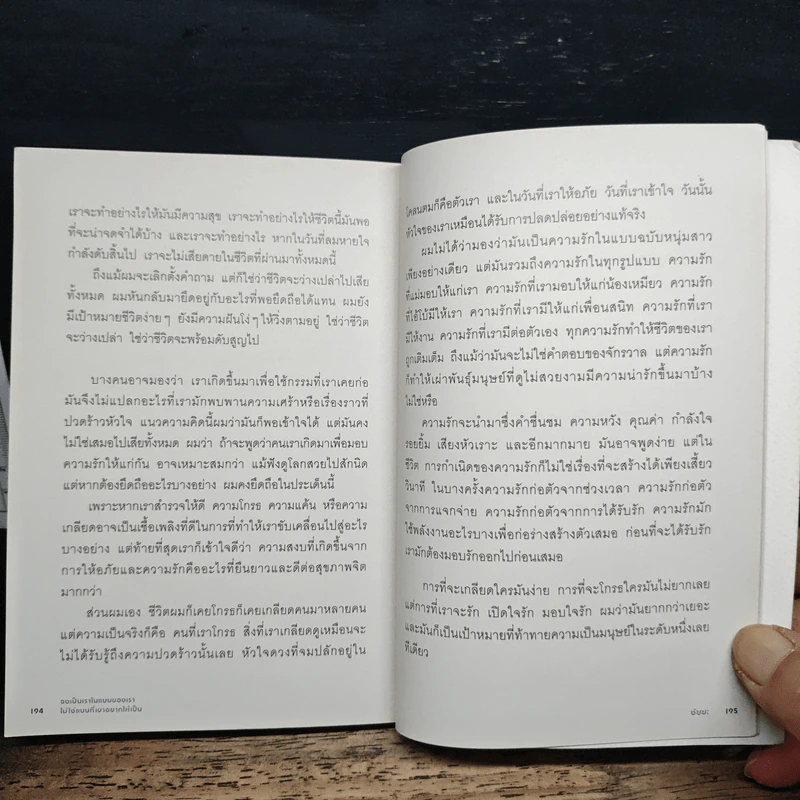 เราจะทำอย่างไรให้มันมีความสุข เราจะทำอย่างไรให้ชีวิตนี้มันพอ
ที่จะน่าจดจำได้บ้าง และเราจะทำอย่างไร หากในวันที่ลมหายใจ
กำลังดับสิ้นไป เราจะไม่เสียดายในชีวิตที่ผ่านมาทั้งหมดนี้
ถึงแม้ผมจะเลิกตั้งคำถาม แต่ก็ใช่ว่าชีวิตจะว่างเปล่าไปเสีย
ทั้งหมด ผมหันกลับมายึดอยู่กับอะไรที่พอยึดถือได้แทน ผมยัง
มีเป้าหมายชีวิตง่ายๆ ยังมีความฝันโง่ๆ ให้วิ่งตามอยู่ ใช่ว่าชีวิต
จะว่างเปล่า ใช่ว่าชีวิตจะพร้อมดับสูญไป
บางคนอาจมองว่า เราเกิดขึ้นมาเพื่อใช้กรรมที่เราเคยก่อ
มันจึงไม่แปลกอะไรที่เรามักพบพานความเศร้าหรือเรื่องราวที่
ปวดร้าวหัวใจ แนวความคิดนี้ผมว่ามันก็พอเข้าใจได้ แต่มันคง
ไม่ใช่เสมอไปเสียทั้งหมด ผมว่า ถ้าจะพูดว่าคนเราเกิดมาเพื่อมอบ
ความรักให้แก่กัน อาจเหมาะสมกว่า แม้ฟังดูโลกสวยไปสักนิด
แต่หากต้องยึดถืออะไรบางอย่าง ผมคงยึดถือในประเด็นนี้
เพราะหากเราสำรวจให้ดี ความโกรธ ความแค้น หรือความ
เกลียดอาจเป็นเชื้อเพลิงที่ดีในการที่ทำให้เราขับเคลื่อนไปสู่อะไร
บางอย่าง แต่ท้ายที่สุดเราก็เข้าใจดีว่า ความสงบที่เกิดขึ้นจาก
การให้อภัยและความรักคืออะไรที่ยืนยาวและดีต่อสุขภาพจิต
มากกว่า
ส่วนผมเอง ชีวิตผมก็เคยโกรธก็เคยเกลียดคนมาหลายคน
แต่ความเป็นจริงก็คือ คนที่เราโกรธ สิ่งที่เราเกลียดดูเหมือนจะ
ไม่ได้รับรู้ถึงความปวดร้าวนั้นเลย หัวใจดวงที่จมปลักอยู่ใน
194 จงเป็นเราในแบบของเรา
ไม่ใช่แบบที่เขาอยากให้เป็น
โคลนตมก็คือตัวเรา และในวันที่เราให้อภัย วันที่เราเข้าใจ วันนั้น
หัวใจของเราเหมือนได้รับการปลดปล่อยอย่างแท้จริง
ผมไม่ได้ว่ามองว่ามันเป็นความรักในแบบฉบับหนุ่มสาว
เพียงอย่างเดียว แต่มันรวมถึงความรักในทุกรูปแบบ ความรัก
ที่แม่มอบให้แก่เรา ความรักที่เรามอบให้แก่น้องเหมียว ความรัก
ที่ไอ้โบ้มีให้เรา ความรักที่เรามีให้แก่เพื่อนสนิท ความรักที่เรา
มีให้งาน ความรักที่เรามีต่อตัวเอง ทุกความรักทำให้ชีวิตของเรา
ถูกเติมเต็ม ถึงแม้ว่ามันจะไม่ใช่คำตอบของจักรวาล แต่ความรัก
ก็ทำให้เผ่าพันธุ์มนุษย์ที่ดูไม่สวยงามมีความน่ารักขึ้นมาบ้าง
ไม่ใช่หรือ
ความรักจะนำมาซึ่งคำชื่นชม ความหวัง คุณค่า กำลังใจ
รอยยิ้ม เสียงหัวเราะ และอีกมากมาย มันอาจพูดง่าย แต่ใน
ชีวิต การกำเนิดของความรักก็ไม่ใช่เรื่องที่จะสร้างได้เพียงเสี้ยว
วินาที ในบางครั้งความรักก่อตัวจากช่วงเวลา ความรักก่อตัว
จากการแจกจ่าย ความรักก่อตัวจากการได้รับรัก ความรักมัก
ใช้พลังงานอะไรบางเพื่อก่อร่างสร้างตัวเสมอ ก่อนที่จะได้รับรัก
เรามักต้องมอบรักออกไปก่อนเสมอ
การที่จะเกลียดใครมันง่าย การที่จะโกรธใครมันไม่ยากเลย
แต่การที่เราจะรัก เปิดใจรัก มอบใจรัก ผมว่ามันยากกว่าเยอะ
และมันก็เป็นเป้าหมายที่ท้าทายความเป็นมนุษย์ในระดับหนึ่งเลย
ทีเดียว
195